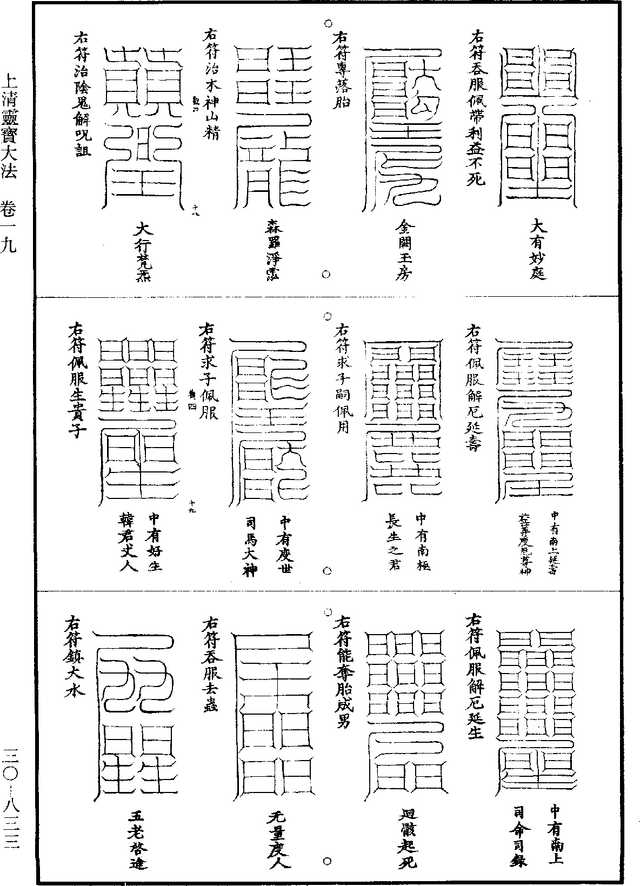 大有妙庭
右符吞服佩帶利益不死
金闕王房
右符專落胎
森羅淨泓
右符治木神山精
十八
大行梵炁
右符治陰鬼解呪詛
中有南上延壽
度厄尊神
右符佩服解厄延壽
中有南極
長生之君
右符求子嗣佩用
中有度世
司馬大神
右符求子佩服
十九
中有好生
韓君丈人
右符佩服生貴子
中有南上
司命司錄
右符佩服解厄延生
迴骸起死
右符能奪胎成男
无量度人
右符吞服去蟲
五老啓途
右符鎮大水
上清靈寶大法 卷一九
三〇-八三三